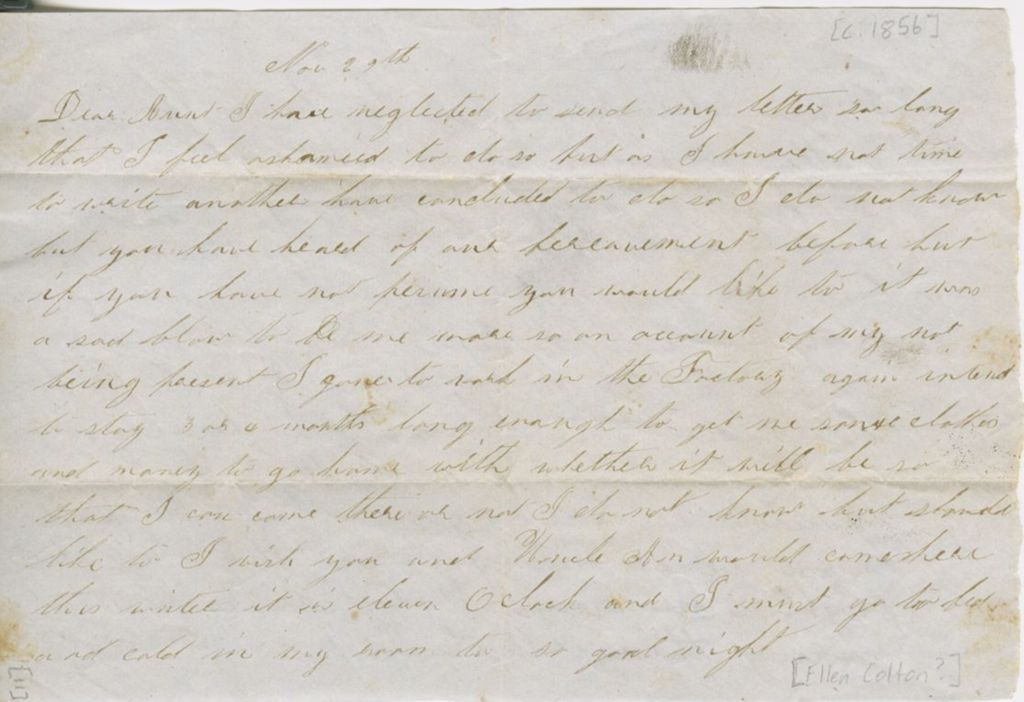 [c. 1856]
Nov 29th
Dear Aunt I have neglected to send my letter so long
that I feel ashamed to do so but as I have not time
to write another have concluded to do so I do not know
but you have heard of our bereavement before but
if you have not persume you would like to it was
a sad blow to me more so on account of my not
being present I gone to work in the Factory again intend
to stay 3 or 4 months long enough to get me some clothes
and money to go home with whether it will be so
that I can come there or not I do not know but should
like to I wish you and Uncle would come here
this winter it is eleven O clock and I must go to bed
cold in my room to so good night
[Ellen Colton?]
[11]